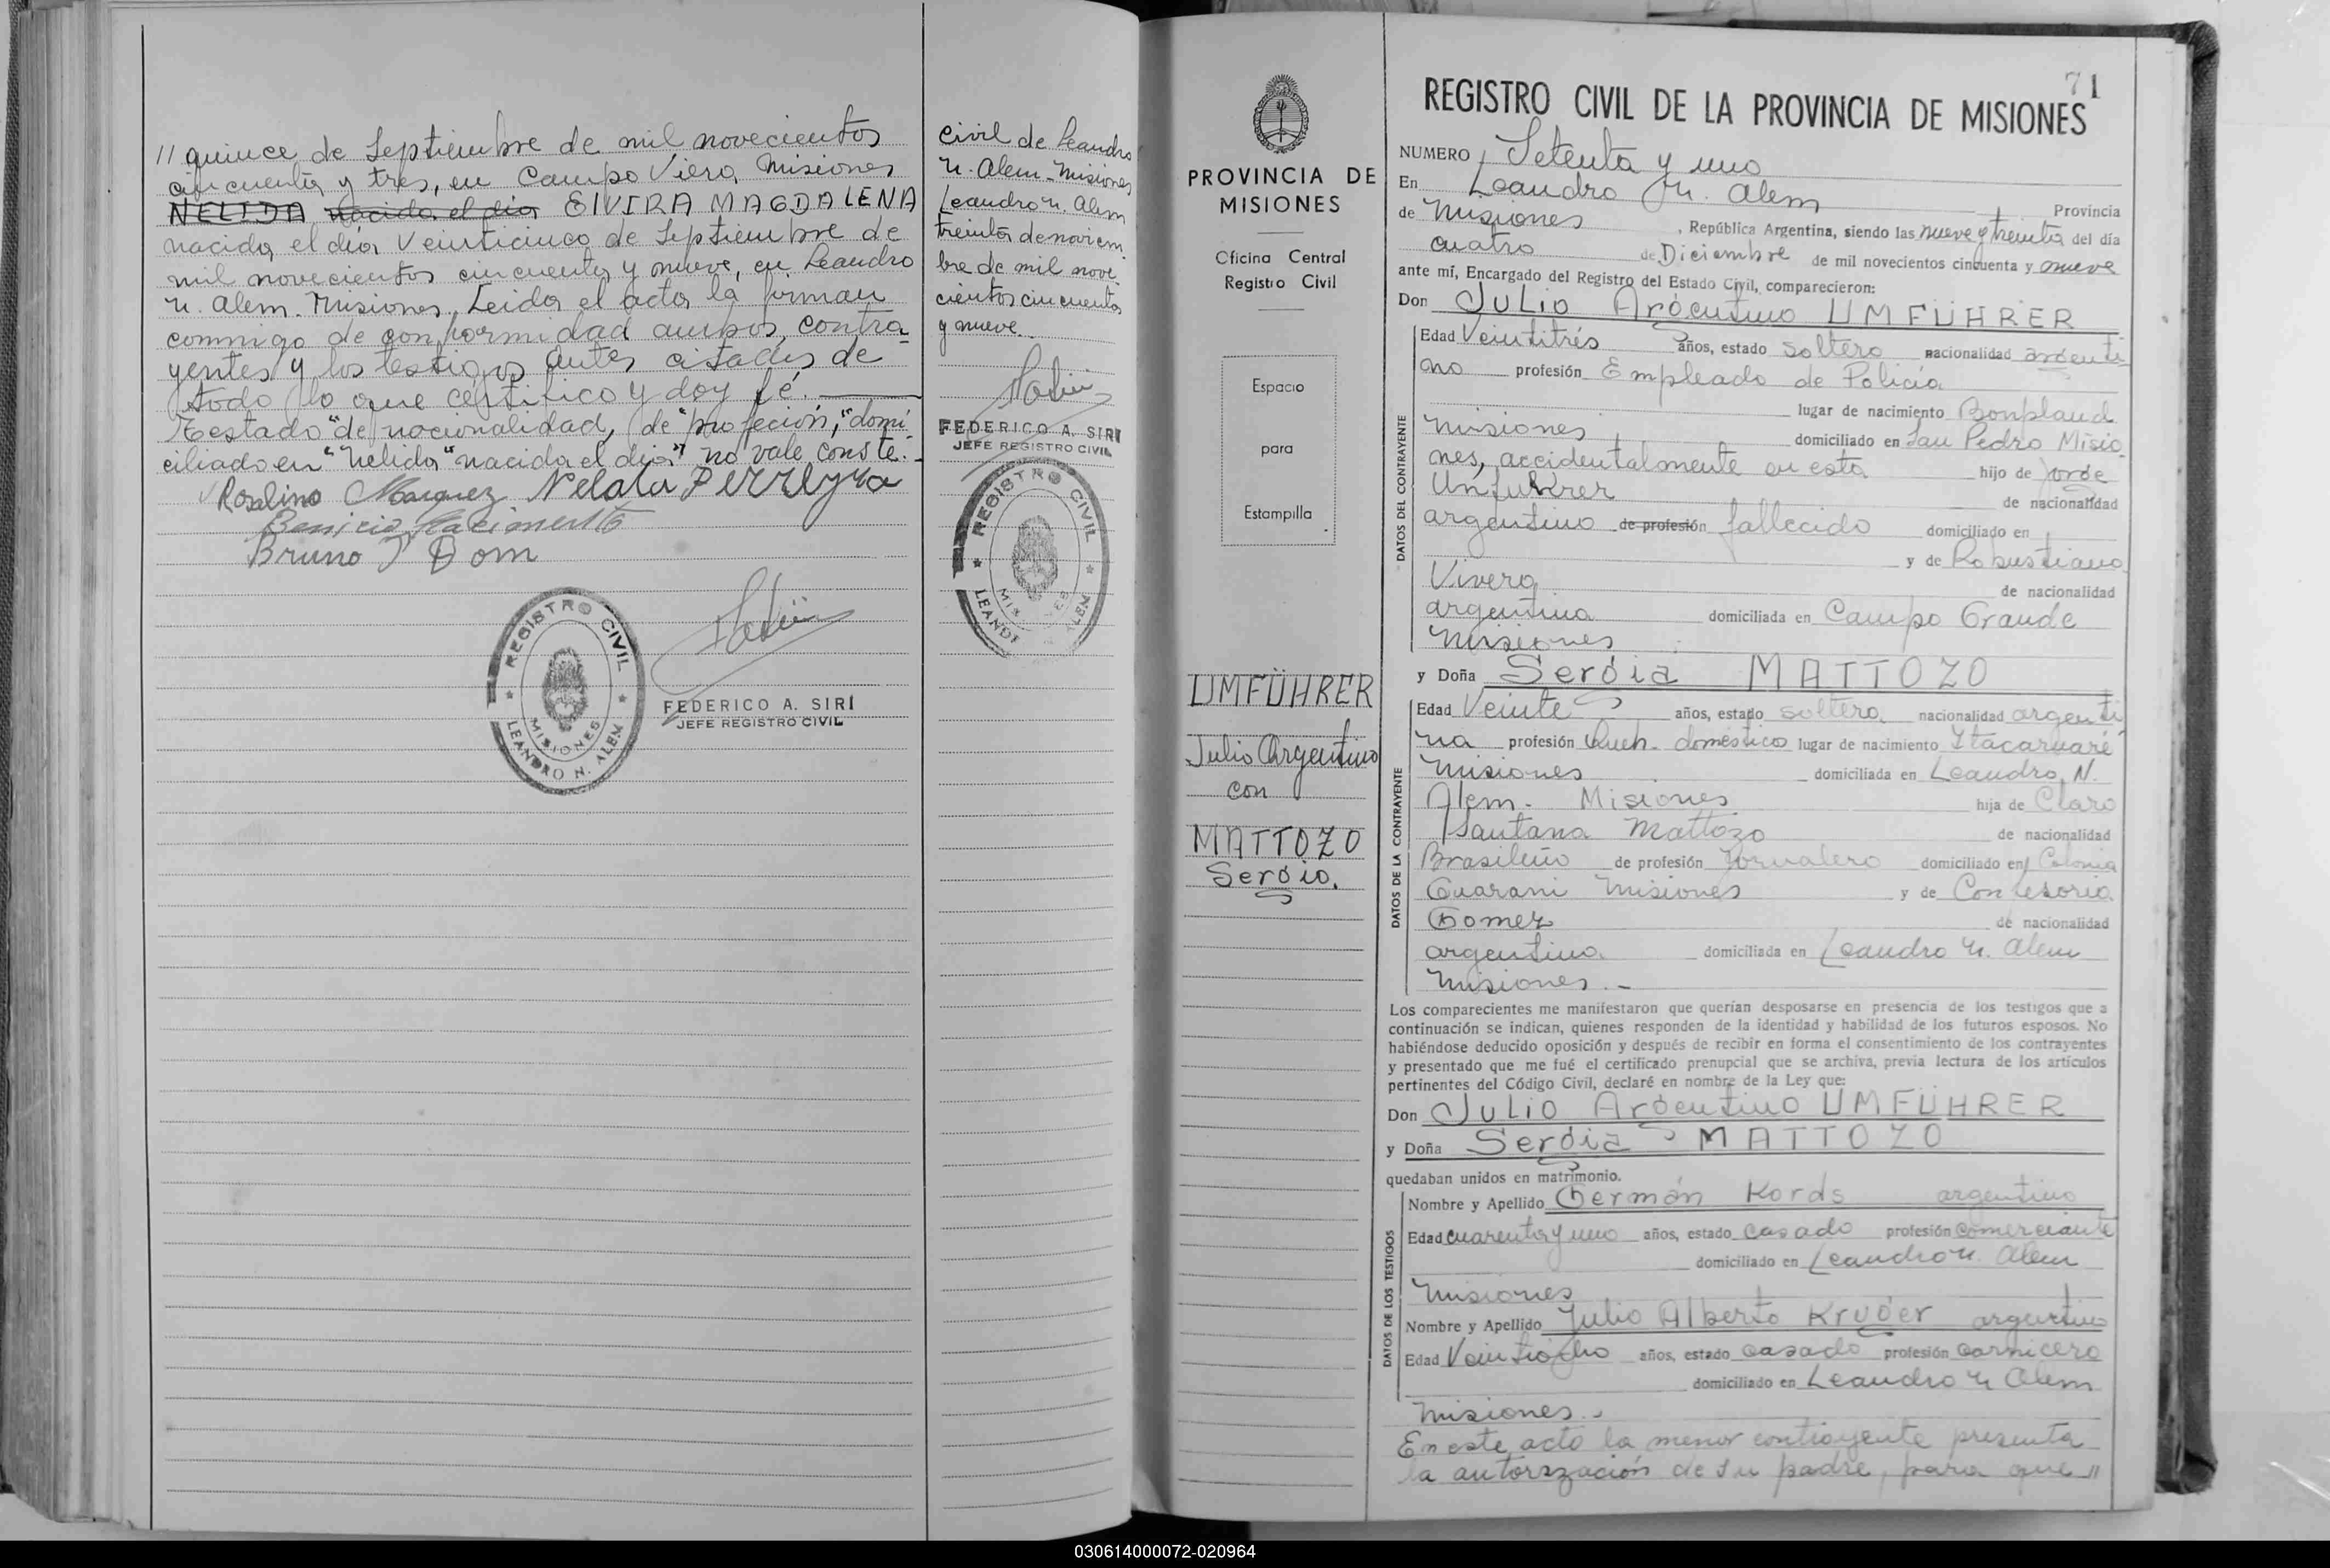 // quince de Septiembre de mil novecientos
cincuenta y tres, en Campo Viera Misiones
NELIDA nacida el dia ElVIRA MAGDALENA
nacida el día Veinticinco de Septiembre de
mil novecientos cincuenta y nueve, en Leandro
N. Alem. Misiones, Leida el acta la firman
conmigo de conformidad ambos, contra-
yentes y los testigos antes citados de
todo lo que certifico y doy fé.
Testado "de nacionalidad, de "profeción, "domi-
ciliado en "Nelida "nacida el dia" no vale conste.-
Rosalino Marquez Nelala Perreyra
Benicio Nacimento
Bruno Dom
REGISTRO CIVIL
MISIONES
LEANDRO N. ALEM
FEDERICO A. SIRI
JEFE REGISTRO CIVIL
civil de Leandro
N. Alem - Misiones
Leandro N. Alem
treinta de noviem
bre de mil nove
cientos cincuenta
y nueve.
FEDERICO A. SIRI
JEFE REGISTRO CIVIL
REGISTRO CIVIL
PROVINCIA DE
MISIONES
Oficina Central
Registro Civil
Espacio
para
Estampilla
UMFÜHRER
Julio Argentino
con
MATTOZO
Sergio.
71
REGISTRO CIVIL DE LA PROVINCIA DE MISIONES
NUMERO Setenta y uno
En Leandro N. Alem
Provincia
de Misiones, República Argentina, siendo las nueve y treinta del día
cuatro de Diciembre de mil novecientos cincuenta y nueve
ante mí, Encargado del Registro del Estado Civil, comparecieron:
Don JULIO Argentino UMFÜHRER
DATOS DEL CONTRAYENTE
Edad Veintitrés años, estado soltero nacionalidad argenti-
no profesión Empleado de Policía
lugar de nacimiento Bonpland
Misiones domiciliado en San Pedro Misio
nes, accidentalmente en esta hijo de Jorge
Unfuhrer de nacionalidad
argentino de profesión fallecido domiciliado en
y de Robustiana
Vivera de nacionalidad
argentina domiciliada en Campo Grande
Misiones
y Doña Sergia MATTOZO
DATOS DE LA CONTRAYENTE
Edad Veinte años, estado soltera nacionalidad argenti
na profesión Queh. doméstico lugar de nacimiento Itacaruaré
Misiones domiciliada en Leandro N.
Alem. Misiones hija de Claro
Santana Mattozo de nacionalidad
Brasileño de profesión Jornalero domiciliado en Colonia
Guarani Misiones y de Confesoria
Gomez de nacionalidad
argentina domiciliada en Leandro N. Alem
Misiones.-
Los comparecientes me manifestaron que querían desposarse en presencia de los testigos que a
continuación se indican, quienes responden de la identidad y habilidad de los futuros esposos. No
habiéndose deducido oposición y después de recibir en forma el consentimiento de los contrayentes
y presentado que me fué el certificado prenupcial que se archiva, previa lectura de los artículos
pertinentes del Código Civil, declaré en nombre de la Ley que:
Don JULIO Argentino UMFÜHRER
y Doña Sergia MATTOZO
quedaban unidos en matrimonio.
DATOS DE LOS TESTIGOS
Nombre y Apellido Germán Kords argentino
Edad cuarenta y uno años, estado casado profesión comerciante
domiciliado en Leandro N. Alem
Misiones
Nombre y Apellido Julio Alberto Kruger argentino
Edad Veintiocho años, estado casado profesión carnicero
domiciliado en Leandro N Alem
Misiones.-
En este acto la menor contrayente presenta
la autorización de su padre, para que //
030614000072-020964